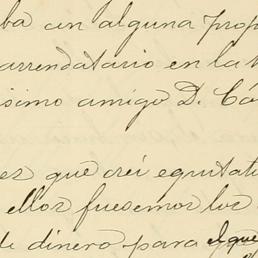 ba en alguna prop
arrendatario en la
simo amigo D. Cá
es que creí equitati
ellos fuesemos los
de dinero para el que